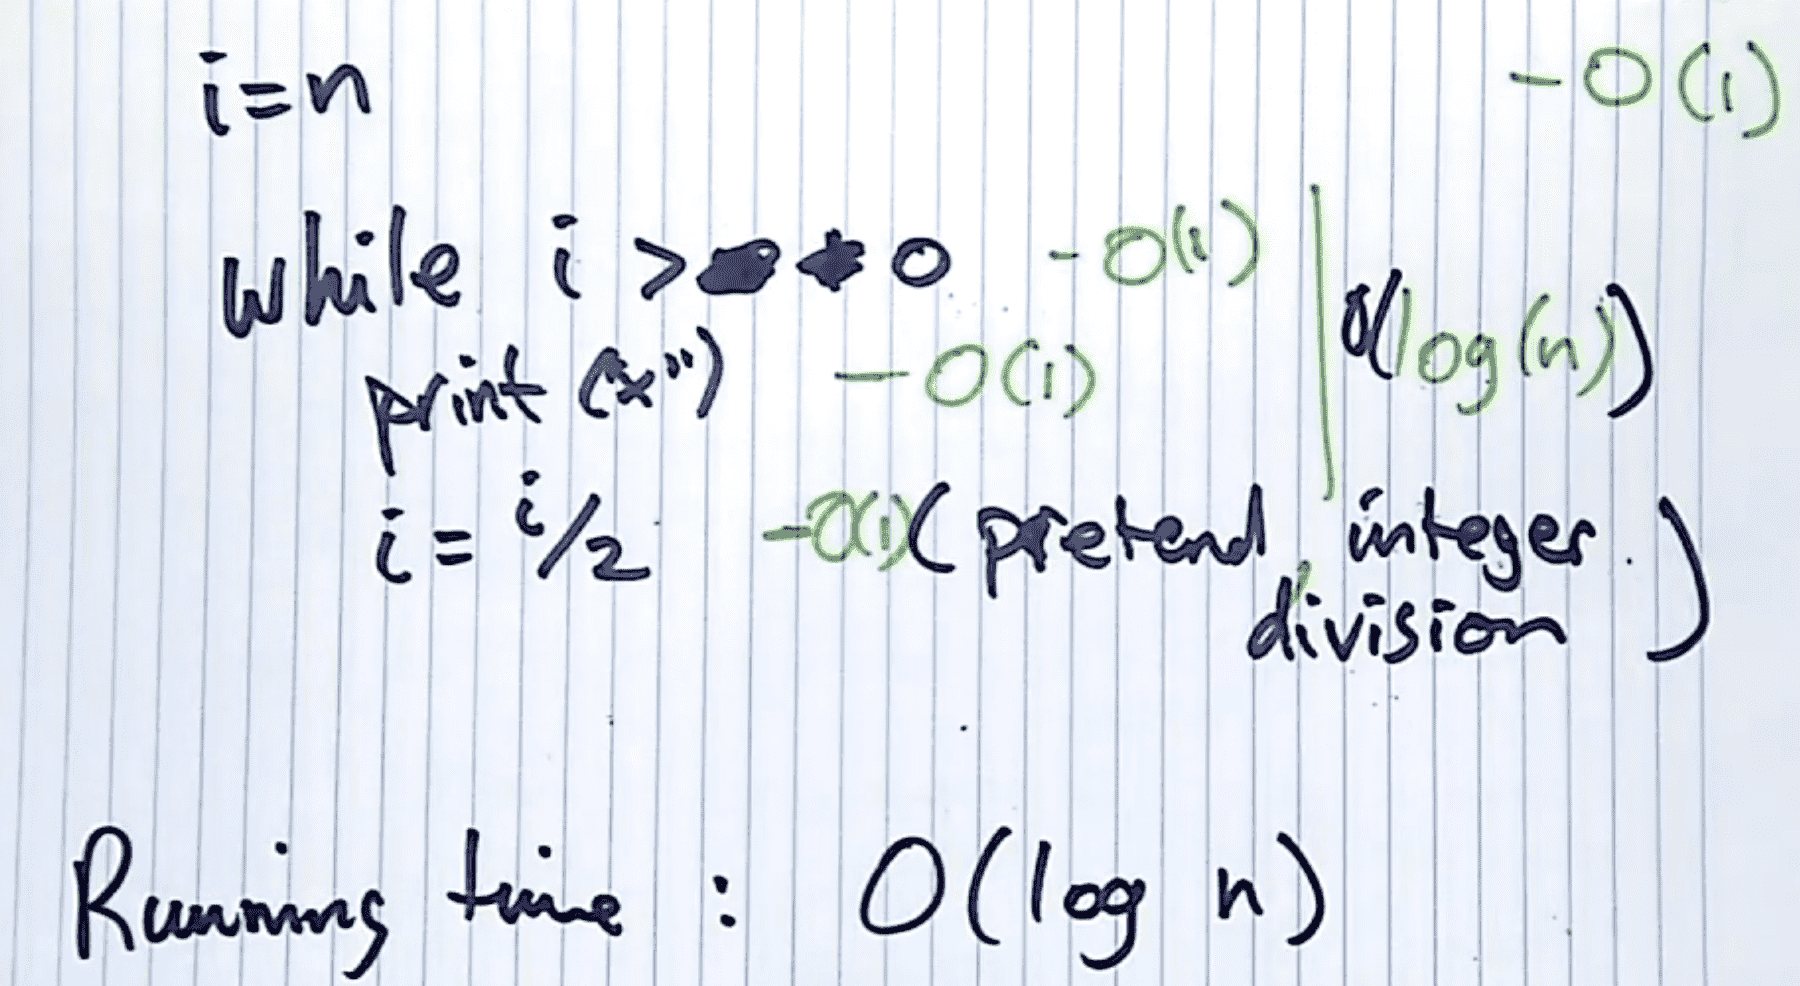 i=n - O(1)
while i > 0 - O(1)
O(log(n))
print ("x") - O(1)
i = i/2 - O(1) (pretend integer
division)
Running time : O(log n)